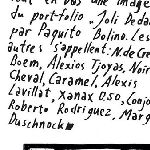 Tout en bas une image
du port-folio "Joli Dedans"
par Paquito Bolino. Les
autres s'appellent: N. de Gre
Boem, Alexios Tjoyas, Noir
Cheval, Caramel, Alexis
Lavillat, Xanax 0.50, Conjo
Roberto Rodriguez, Marg
Duschnock